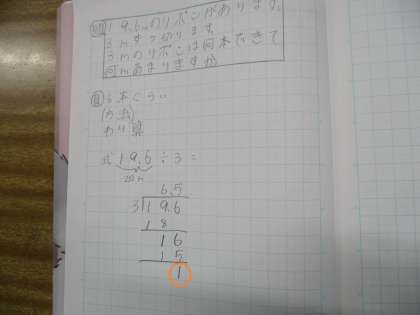 問 19.6mのリボンがあります。
3mずつ切ります。
3mのリボンは何本できて
何mあまりますか
6本ぐらい
わり算
式 19.6÷3=
20m
6.5
3 19.6
18
16
15
1